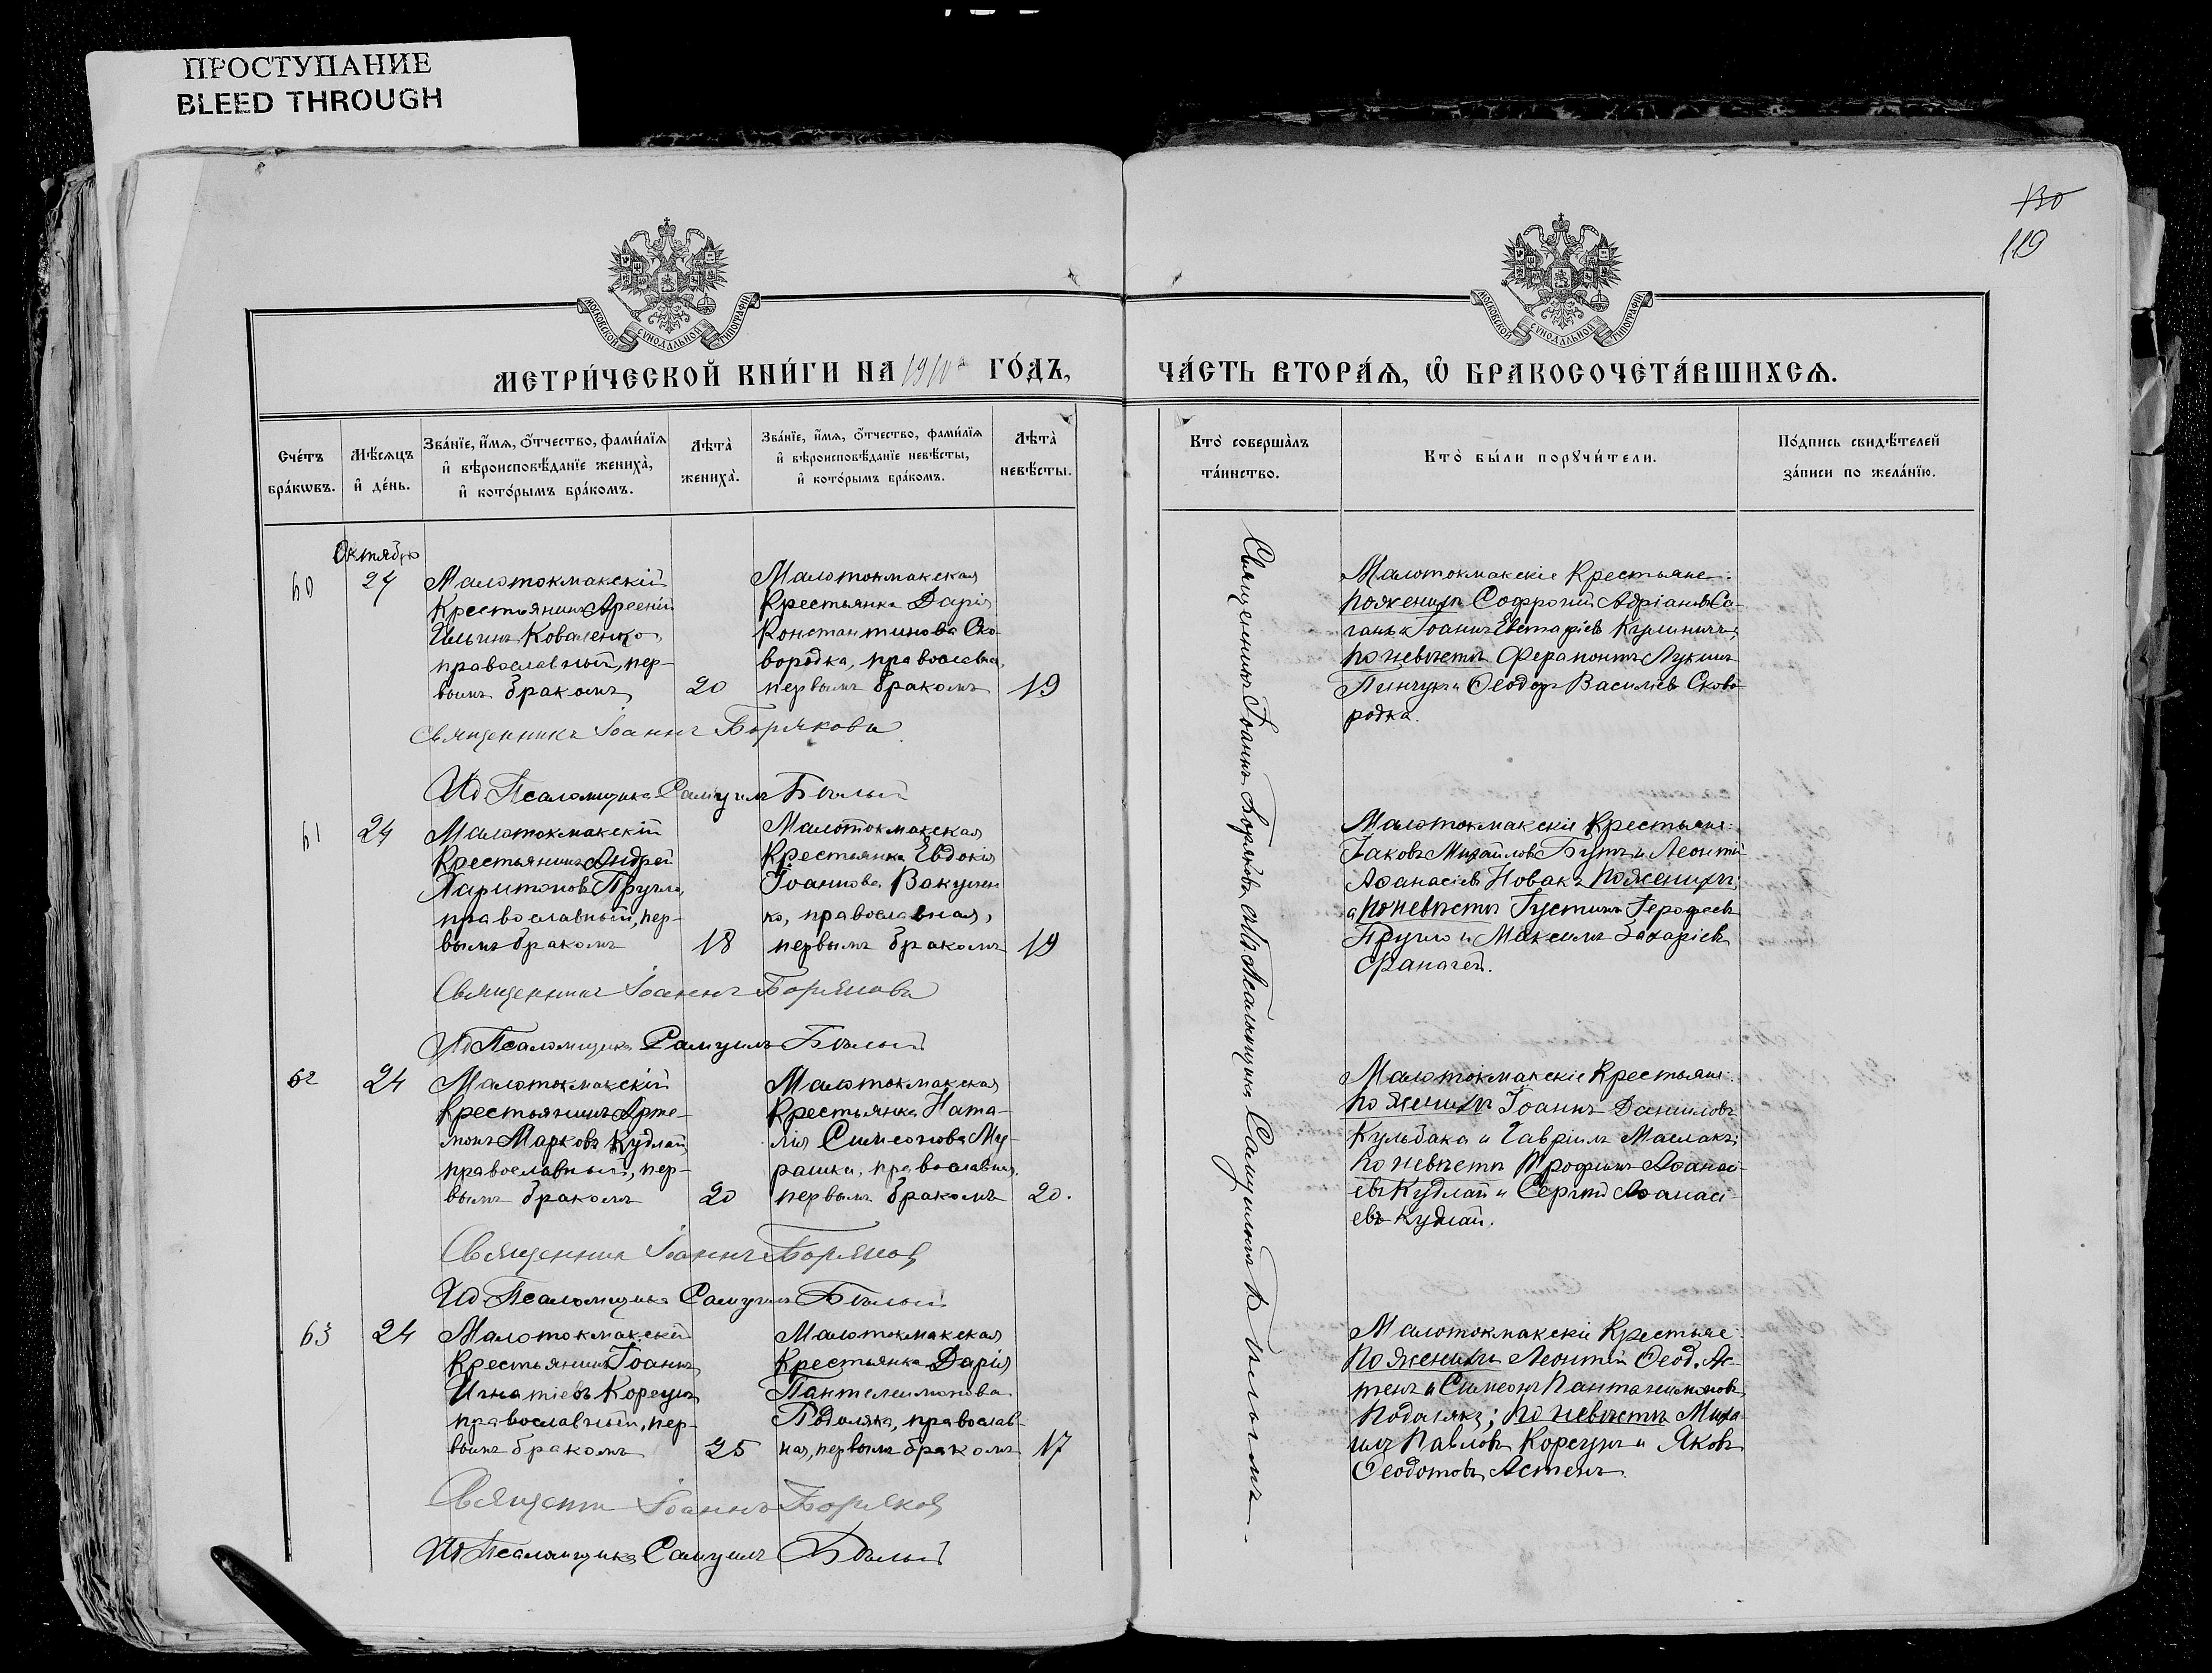 ПРОСТУПАНИЕ
BLEED THROUGH
130
119
МОСКОВСКОЙ СѴНОДАЛЬНОЙ ТИПОГРАФІИ
МОСКОВСКОЙ СѴНОДАЛЬНОЙ ТИПОГРАФІИ
МЕТРИ́ЧЕСКОЙ КНИ́ГИ НА ГО́ДЪ,
ЧА́СТЬ ВТОРА́Ѧ, Ѽ БРАКОСОЧЕТА́ВШИХСѦ.
Сче́тъ
бра́кѡвъ.
Мѣ́сѧцъ
и҆ де́нь.
Зва́нїе, и҆́мѧ, ѻ҆́тчество, фами́лїѧ
и҆ вѣроисповѣ́данїе жениха̀,
и҆ кото́рымъ бра́комъ.
Лѣта̀
жениха̀.
Зва́нїе, и҆́мѧ, ѻ҆́тчество, фами́лїѧ
и҆ вѣроисповѣ́данїе невѣ́сты,
и҆ кото́рымъ бра́комъ.
Лѣта̀
невѣ́сты.
Кто̀ соверша́лъ
та́инство.
Кто̀ бы́ли порꙋчи́тели.
По́дпись свидѣ́телей
за́писи по жела́нїю.
Октябрю
60
24
Малотокмакскій
Крестьянинъ Арсеній
Ильинъ Коваленко,
православный, пер-
вымъ бракомъ
20
Малотокмакская
Крестьянка Дарія
Константинова Ско-
вородка, православная,
первымъ бракомъ
19
Малотокмакскіе Крестьяне:
по женихѣ Софроній Адріановъ Са-
ганъ и Іоаннъ Евстафіевъ
по невѣстѣ Ферапонтъ Лукинъ
Пинчукъ и Ѳеодоръ Василіевъ Сково-
родка.
Священникъ Іоаннъ Боряковъ
Ид Псаломщика Самуилъ Бѣлый
61
24
Малотокмакскій
Крестьянинъ Андрей
Харитоновъ Пругло,
православный, пер-
вымъ бракомъ
18
Малотокмакская
Крестьянка Евдокія
Іоаннова Вакулен
ко, православная,
первымъ бракомъ
19
Малотокмакскіе Крестьяне:
Іаковъ Михайловъ Бутъ и Леонтій
Аѳанасіевъ Новакъ по женихѣ;
а по невѣстѣ Густинъ Герофеевъ
Пругло и Максимъ Захаріевъ
Фаначей.
Священникъ Іоаннъ Боряковъ
Ид Псаломщика Самуилъ Бѣлый
62
24
Малотокмакскій
Крестьянинъ Арте-
монъ Марковъ Кудлай
православный, пер-
вымъ бракомъ
20
Малотокмакская
Крестьянка Ната-
лія Симеонова Му-
рашки, православная,
первымъ бракомъ
20.
Малотокмакскіе Крестьяне:
по женихѣ Іоаннъ Даниловъ
Кульбака и Гавріилъ Маслакъ;
по невѣстѣ Трофимъ Аѳанасі-
евъ Кудлай и Сергѣй Аѳанасі-
евъ Кудлай.
Священникъ Іоаннъ Боряковъ
Ид Псаломщика Самуилъ Бѣлый
63
24
Малотокмакскій
Крестьянинъ Іоаннъ
Игнатіевъ Корсунъ
православный, пер-
вымъ бракомъ
25
Малотокмакская
Крестьянка Дарія
Пантелеимонова
Подоляка, православ-
ная, первымъ бракомъ
17
Малотокмакскіе Крестьяне:
по женихѣ Леонтій Ѳеод. Ас-
тенъ и Симеонъ Пантелеимоновъ
Подолякъ; по невѣстѣ Миха-
илъ Павловъ Корсунъ и Яковъ
Ѳеодотовъ Астенъ.
Священникъ Іоаннъ Боряковъ
Ид Псаломщика Самуилъ Бѣлый
Священникъ Іоаннъ Боряковъ Псаломщика Самуиломъ Бѣлымъ.